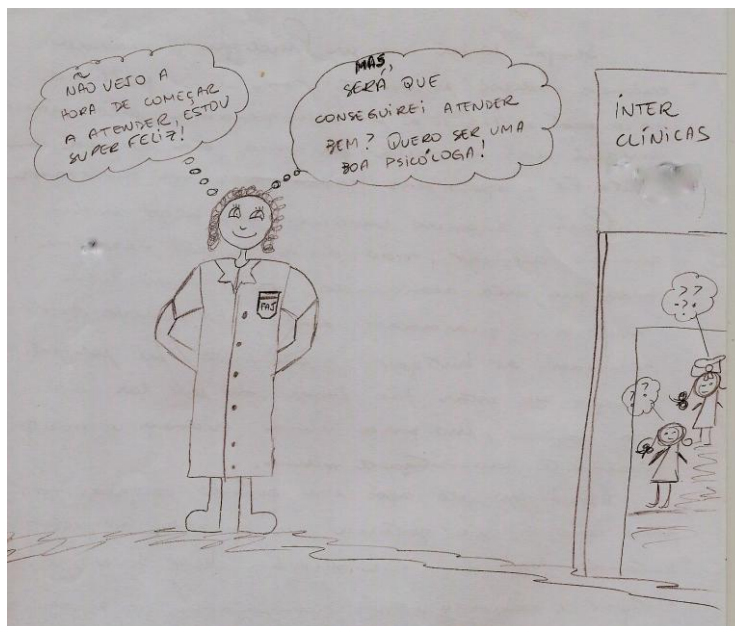 NÃO VEJO A
HORA DE COMEÇAR
A ATENDER, ESTOU
SUPER FELIZ!
MAS,
SERÁ QUE
CONSEGUIREI ATENDER
BEM? QUERO SER UMA
BOA PSICÓLOGA!
INTER
CLÍNICAS
PAJ
??
??
??